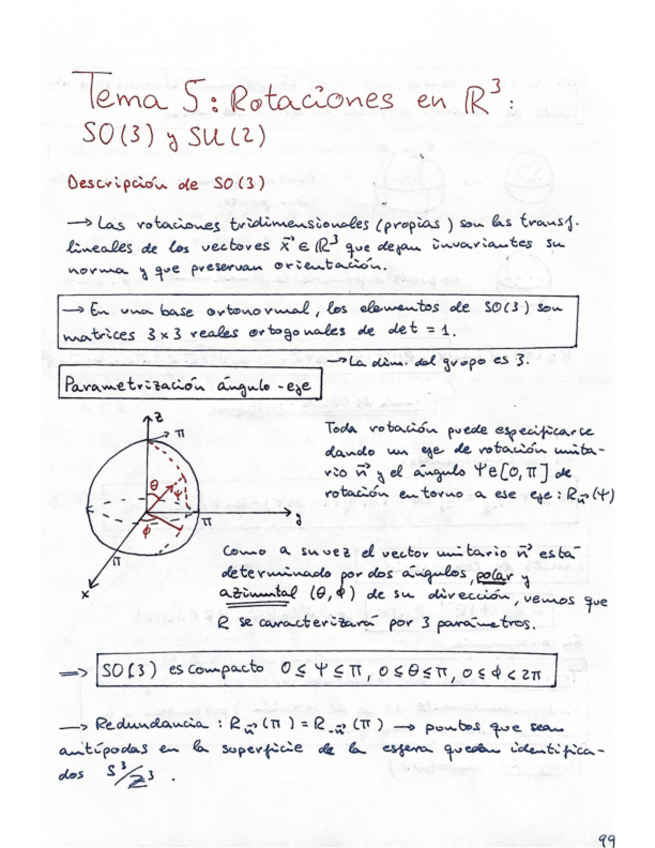 Tema 5: Rotaciones en ℝ³:
SO(3) y SU(2)
Descripción de SO(3)
→ Las rotaciones tridimensionales (propias) son las transf.
lineales de los vectores x⃗ ∈ ℝ³ que dejan invariantes su
norma y que preservan orientación.
→ En una base ortonormal, los elementos de SO(3) son
matrices 3×3 reales ortogonales de det = 1.
→ La dim. del grupo es 3.
Parametrización ángulo-eje
z
π
θ
ψ
y
π
ϕ
π
x
Toda rotación puede especificarse
dando un eje de rotación unita-
rio n⃗ y el ángulo ψ∈[0,π] de
rotación entorno a ese eje: Rn⃗(ψ)
Como a su vez el vector unitario n⃗ está
determinado por dos ángulos, polar y
azimutal (θ,ϕ) de su dirección, vemos que
R se caracterizará por 3 parámetros.
→ SO(3) es compacto 0 ≤ ψ ≤ π, 0 ≤ θ ≤ π, 0 ≤ ϕ < 2π
→ Redundancia: Rn⃗(π) = R-n⃗(π) → puntos que sean
antípodas en la superficie de la esfera quedan identifica-
dos S³/Z³.
99